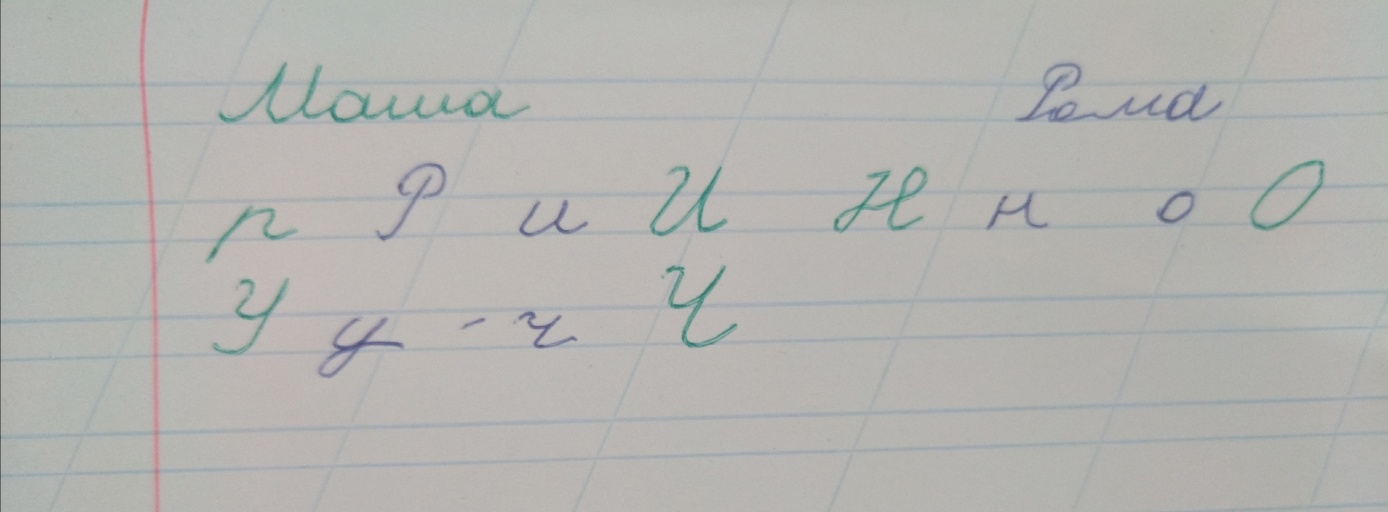 Маша Рома
р Р и И Н н о О
У у - ч Ч